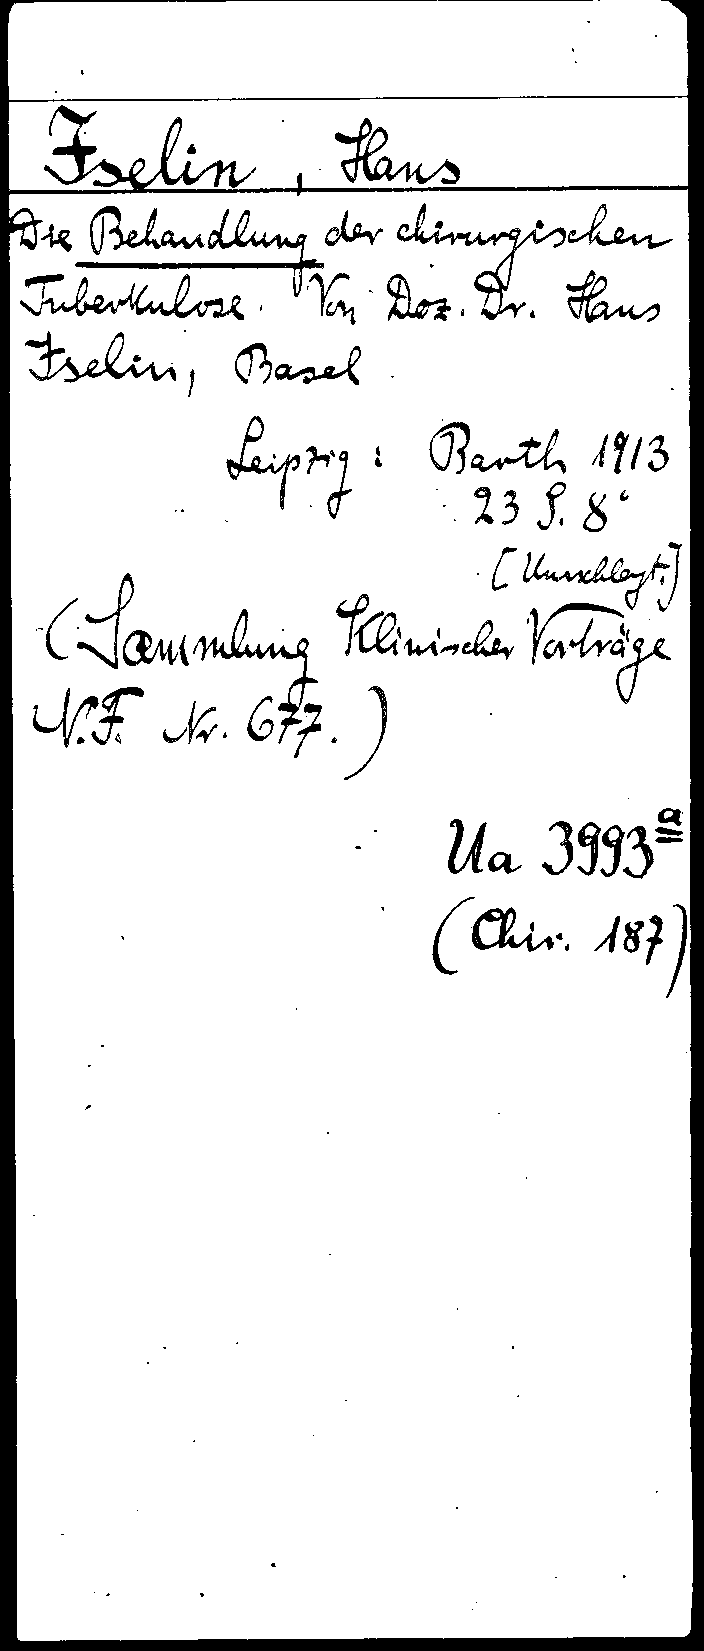 Iselin, Hans
Die Behandlung der chirurgischen
Tuberkulose. Von Doz. Dr. Hans
Iselin, Basel
Leipzig: Barth 1913
23 S. 8°
[Umschlagt.]
(Sammlung Klinischer Vorträge
N.F. Nr. 677.)
Ua 3993a
(Chir. 187)